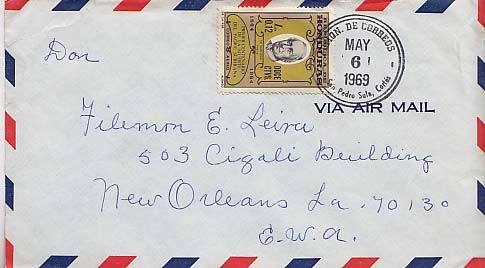 Don
HONDURAS
ON. DE CORREOS
MAY
6
1969
San Pedro Sula, Cortés
VIA AIR MAIL
Filemon E. Leiva
503 Cigali Building
New Orleans La. 70130
E.W.A.